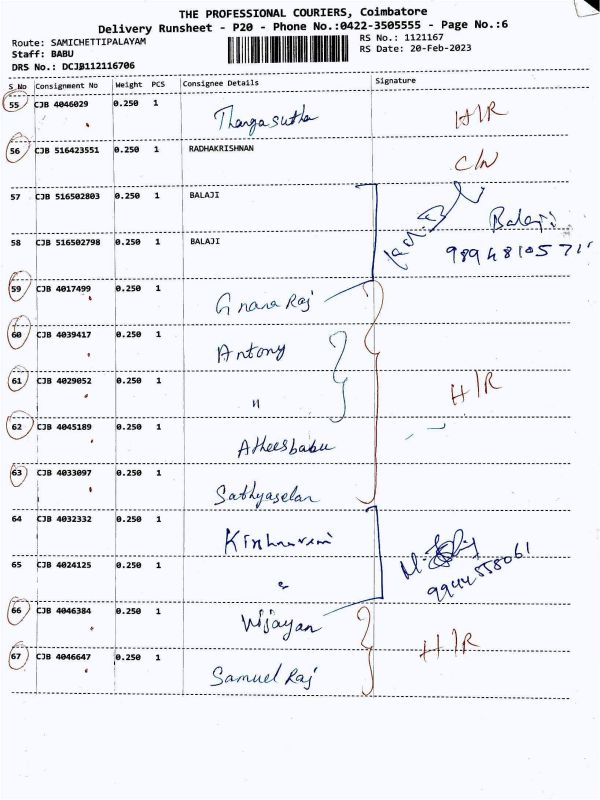 THE PROFESSIONAL COURIERS, Coimbatore
Delivery Runsheet - P20 - Phone No.:0422-3505555 - Page No.:6
Route: SAMICHETTIPALAYAM RS No.: 1121167
Staff: BABU RS Date: 20-Feb-2023
DRS No.: DCJB112116706
S No Consignment No Weight PCS Consignee Details Signature
55 CJB 4046029 0.250 1 Thangasutha H/R
56 CJB 516423551 0.250 1 RADHAKRISHNAN
57 CJB 516502803 0.250 1 BALAJI Balaji
58 CJB 516502798 0.250 1 BALAJI
59 CJB 4017499 0.250 1 Gnana Raj
60 CJB 4039417 0.250 1 Antony
61 CJB 4029052 0.250 1 " H/R
62 CJB 4045189 0.250 1 Atheesbabu
63 CJB 4033097 0.250 1 Sathyaselan
64 CJB 4032332 0.250 1
65 CJB 4024125 0.250 1 " 9944558061
66 CJB 4046384 0.250 1 Vijayan H/R
67 CJB 4046647 0.250 1 Samuel Raj